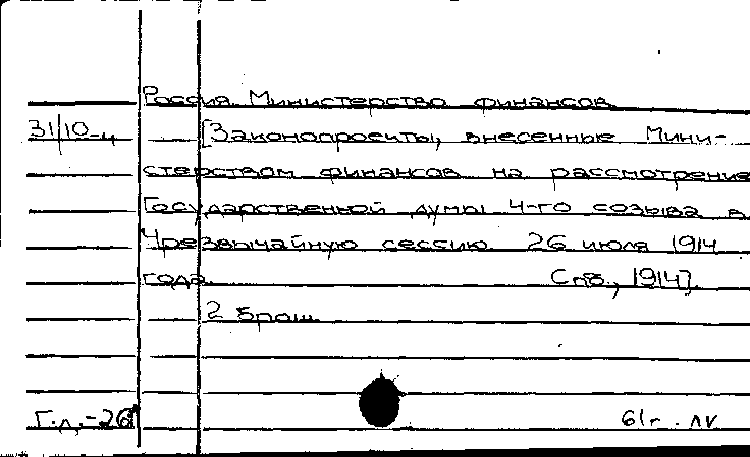 Россия. Министерство финансов.
31/10-4 [Законопроекты, внесенные Мини-
стерством финансов на рассмотрение
Государственной думы 4-го созыва в
Чрезвычайную сессию 26 июля 1914
года. Спб., 1914].
2 брош.
Г.Д.-26 61г.